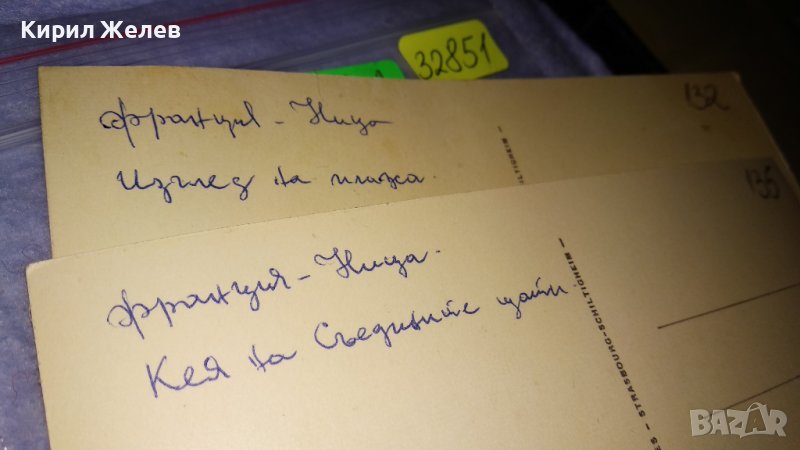 Кирил Желев
32851
132
Франция - Ница
Изглед на плажа.
ILTIGHEIM -
135
Франция - Ница.
Кея на Съедините щати.
ES - STRASBOURG-SCHILTIGHEIM -
BAZAR